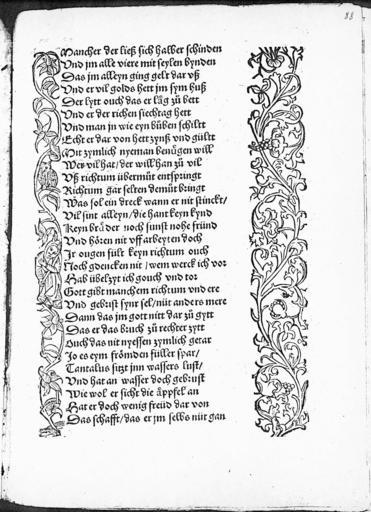 88
Mancher der ließ sich halber schinden
Vnd jm alle viere mit seylen bynden
Das jm alleyn ging gelt dar vß
Vnd er vil golds hett jm sym huß
Der lytt ouch das er läg zů bett
Vnd er der richen siechtag hett
Vnd man jn wie eyn bůben schiltt
Echt er dar von hett zynß vnd gültt
Mit zymlich nyeman benůgen will
Wer vil hat / der will han zů vil
Vß richtum übermůt entspringt
Richtum gar selten demůt bringt
Was sol ein dreck wann er nit stinckt /
Vil sint alleyn / die hant keyn kynd
Keyn brůder noch sunst nohe fründ
Vnd hören nit vff arbeyten doch
Ir ougen fült keyn richtum ouch
Noch gdencken nit / wem werck ich vor
Hab übelzyt ich gouch vnd tor
Gott gibt manchem richtum vnd ere
Vnd gebrist synr sel / nüt anders mere
Dann das jm gott nitt dar zů gytt
Das er das bruch zů rechter zytt
Ouch das nit nyessen zymlich getar
Jo es eym frömden füller spar /
Tantalus sitzt jnn wassers lust /
Vnd hat an wasser doch gebrust
Wie wol er sicht die äppfel an
Hat er doch wenig freüd dar von
Das schafft / das er jm selbs nüt gan